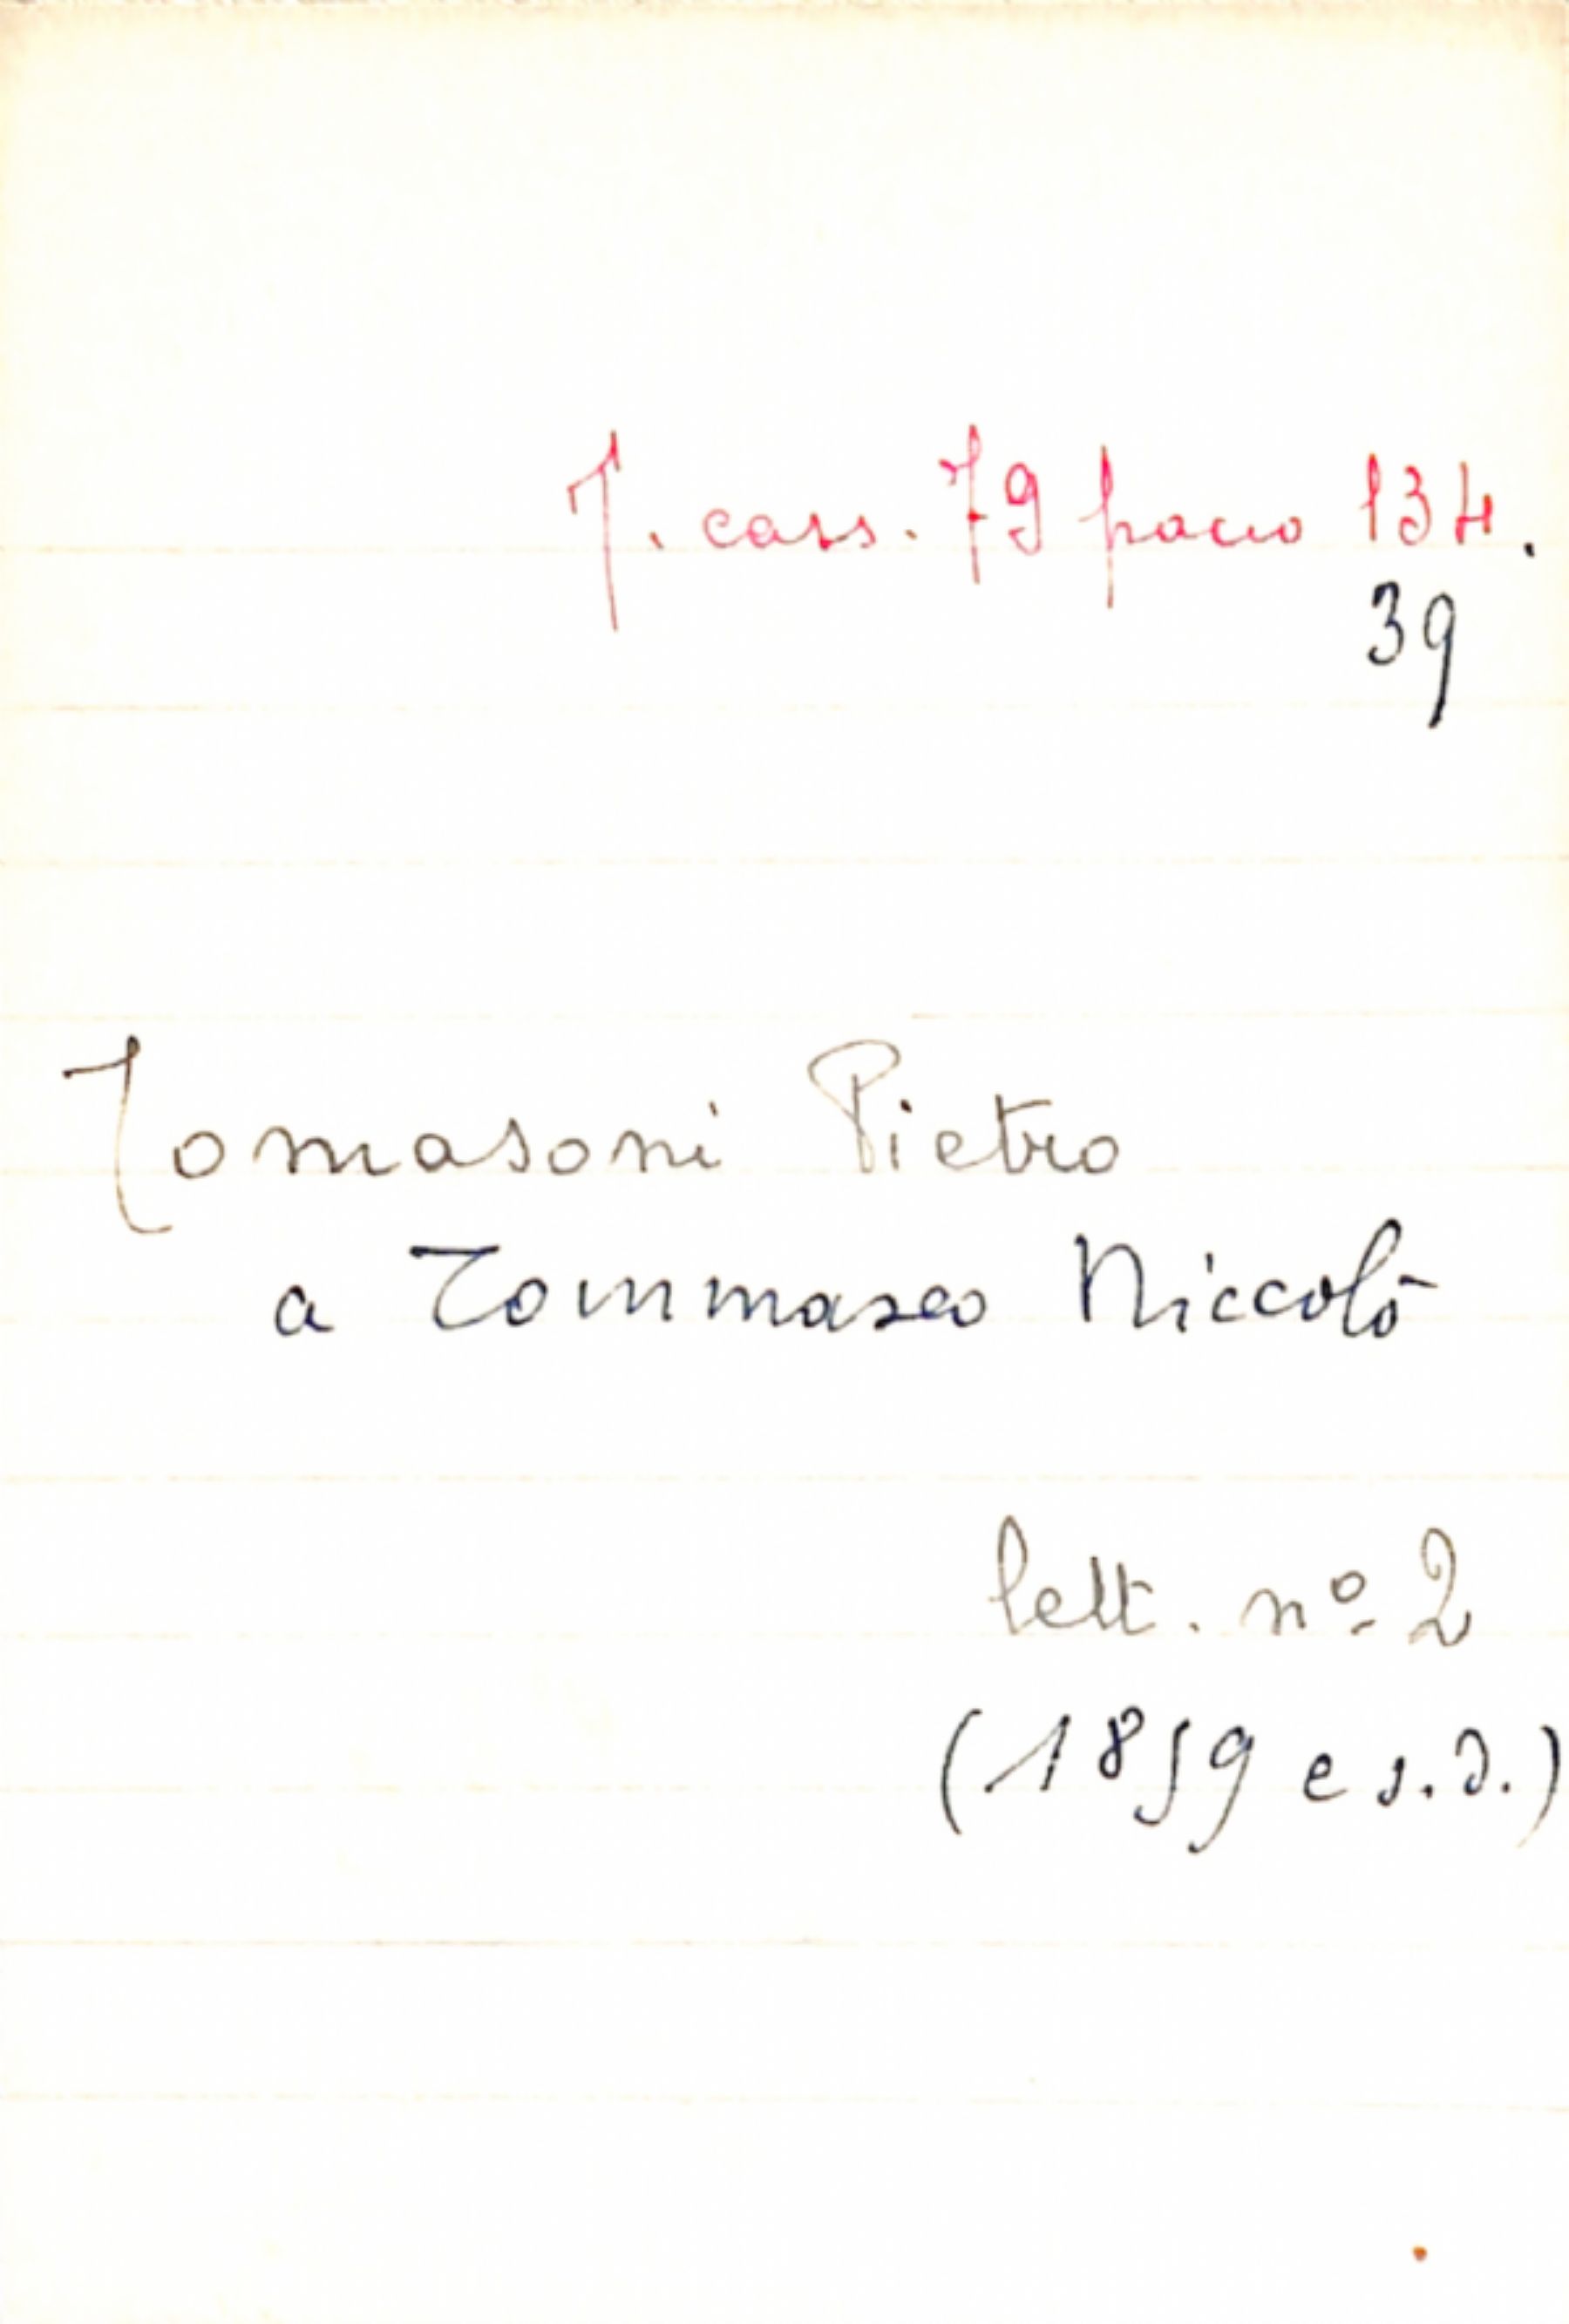 T. cass. 79 pacco 134.
39
Tomasoni Pietro
a Tommaseo Niccolò
lett. nº 2
(1859 e s.d.)